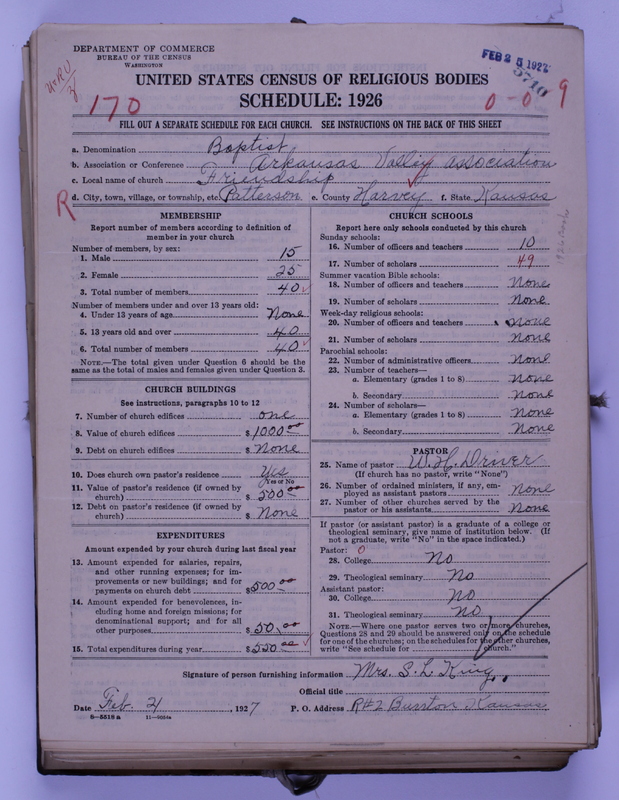 DEPARTMENT OF COMMERCE
BUREAU OF THE CENSUS
WASHINGTON
FEB 25 1927
5710
UNITED STATES CENSUS OF RELIGIOUS BODIES
SCHEDULE: 1926
170
0-0
9
FILL OUT A SEPARATE SCHEDULE FOR EACH CHURCH. SEE INSTRUCTIONS ON THE BACK OF THIS SHEET
a. Denomination Baptist
b. Association or Conference Arkansas Valley association
c. Local name of church Friendship
R
d. City, town, village, or township, etc. Patterson e. County Harvey f. State Kansas
MEMBERSHIP
Report number of members according to definition of
member in your church
Number of members, by sex:
1. Male 15
2. Female 25
3. Total number of members 40
Number of members under and over 13 years old:
4. Under 13 years of age None
5. 13 years old and over 40
6. Total number of members 40
NOTE.—The total given under Question 6 should be the
same as the total of males and females given under Question 3.
CHURCH BUILDINGS
See instructions, paragraphs 10 to 12
7. Number of church edifices one
8. Value of church edifices $1000 00
9. Debt on church edifices $ None
10. Does church own pastor's residence Yes
Yes or No
11. Value of pastor's residence (if owned by
church) $ 500 00
12. Debt on pastor's residence (if owned by
church) $ None
EXPENDITURES
Amount expended by your church during last fiscal year
13. Amount expended for salaries, repairs,
and other running expenses; for im-
provements or new buildings; and for
payments on church debt $500 00
14. Amount expended for benevolences, in-
cluding home and foreign missions; for
denominational support; and for all
other purposes $ 50.00
15. Total expenditures during year $550 00
CHURCH SCHOOLS
Report here only schools conducted by this church
Sunday schools:
16. Number of officers and teachers 10
17. Number of scholars 49
Summer vacation Bible schools:
18. Number of officers and teachers None
19. Number of scholars None
Week-day religious schools:
20. Number of officers and teachers None
21. Number of scholars None
Parochial schools:
22. Number of administrative officers None
23. Number of teachers—
a. Elementary (grades 1 to 8) None
b. Secondary None
24. Number of scholars—
a. Elementary (grades 1 to 8) None
b. Secondary None
PASTOR
25. Name of pastor W. H. Driver
(If church has no pastor, write "None")
26. Number of ordained ministers, if any, em-
ployed as assistant pastors None
27. Number of other churches served by the
pastor or his assistants None
If pastor (or assistant pastor) is a graduate of a college or
theological seminary, give name of institution below. (If
not a graduate, write "No" in the space indicated.)
Pastor: 0
28. College No
29. Theological seminary No
Assistant pastor:
30. College No
31. Theological seminary No
NOTE.—Where one pastor serves two or more churches,
Questions 28 and 29 should be answered only on the schedule
for one of the churches; on the schedules for the other churches,
write "See schedule for church."
Signature of person furnishing information Mrs. S. L. King
Official title
Date Feb. 21, 1927 P. O. Address R#2 Burrton Kansas
8-5518 a